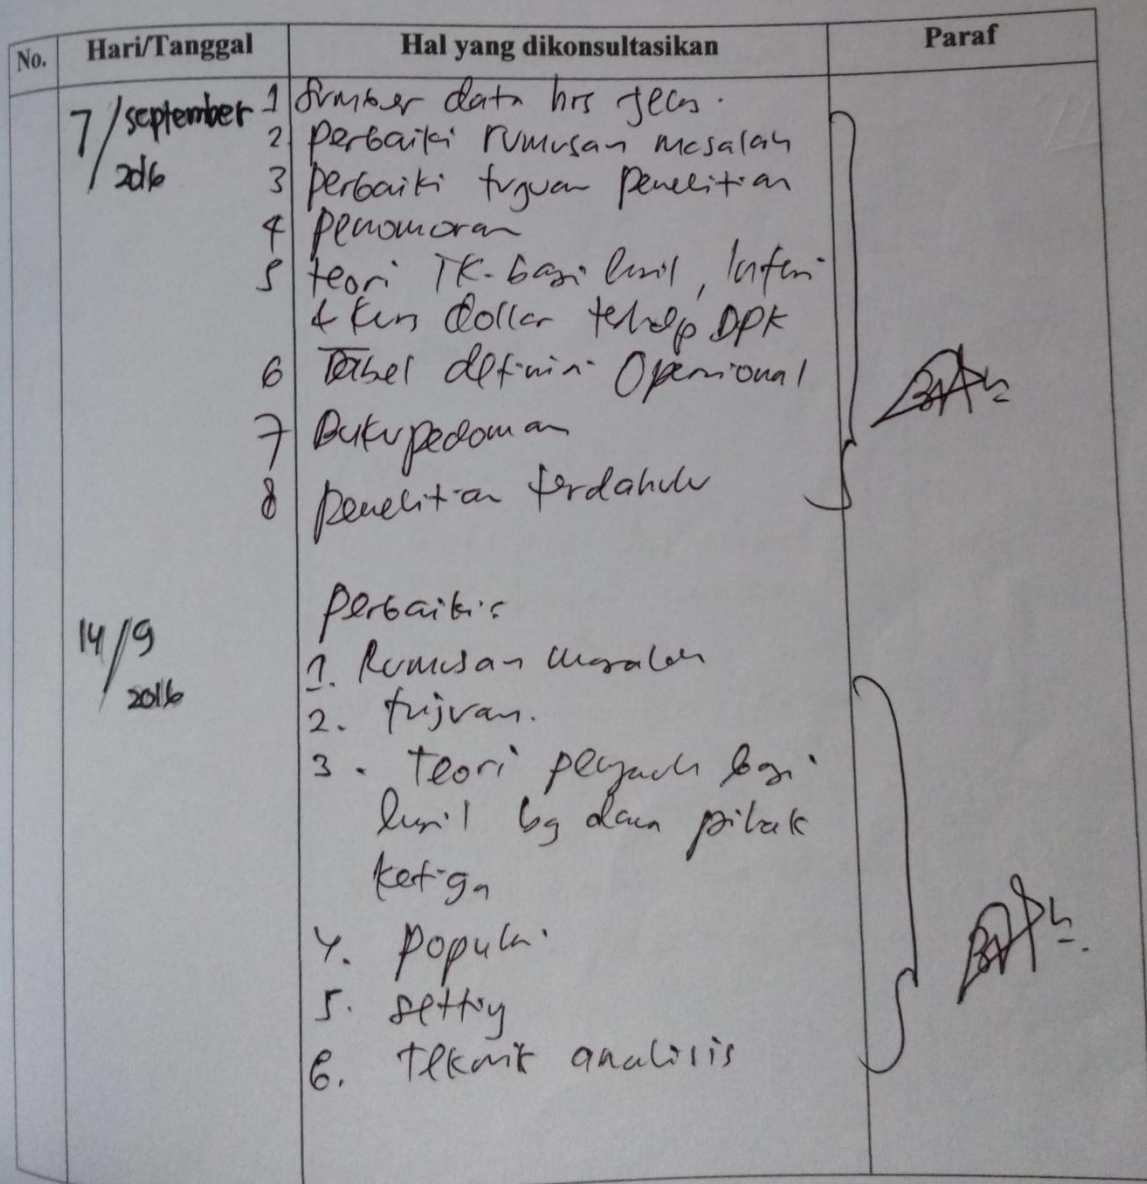 No. Hari/Tanggal Hal yang dikonsultasikan Paraf
7/september 1 Sumber data hrs jelas.
2016 2 perbaiki rumusan masalah
3 perbaiki tuguan penelitian
4 penomoran
5 teori TK. bagi hasil, Inflasi
& kurs dollar terhdp DPK
6 Tabel definisi Operasional
7 Buku pedoman
8 penelitian terdahulu
14/9 perbaiki:
2016 1. Rumusan masalah
2. tujuan.
3. teori pengaruh bagi
hasil bg dana pihak
ketiga
4. populasi
5. setting
6. teknik analisis